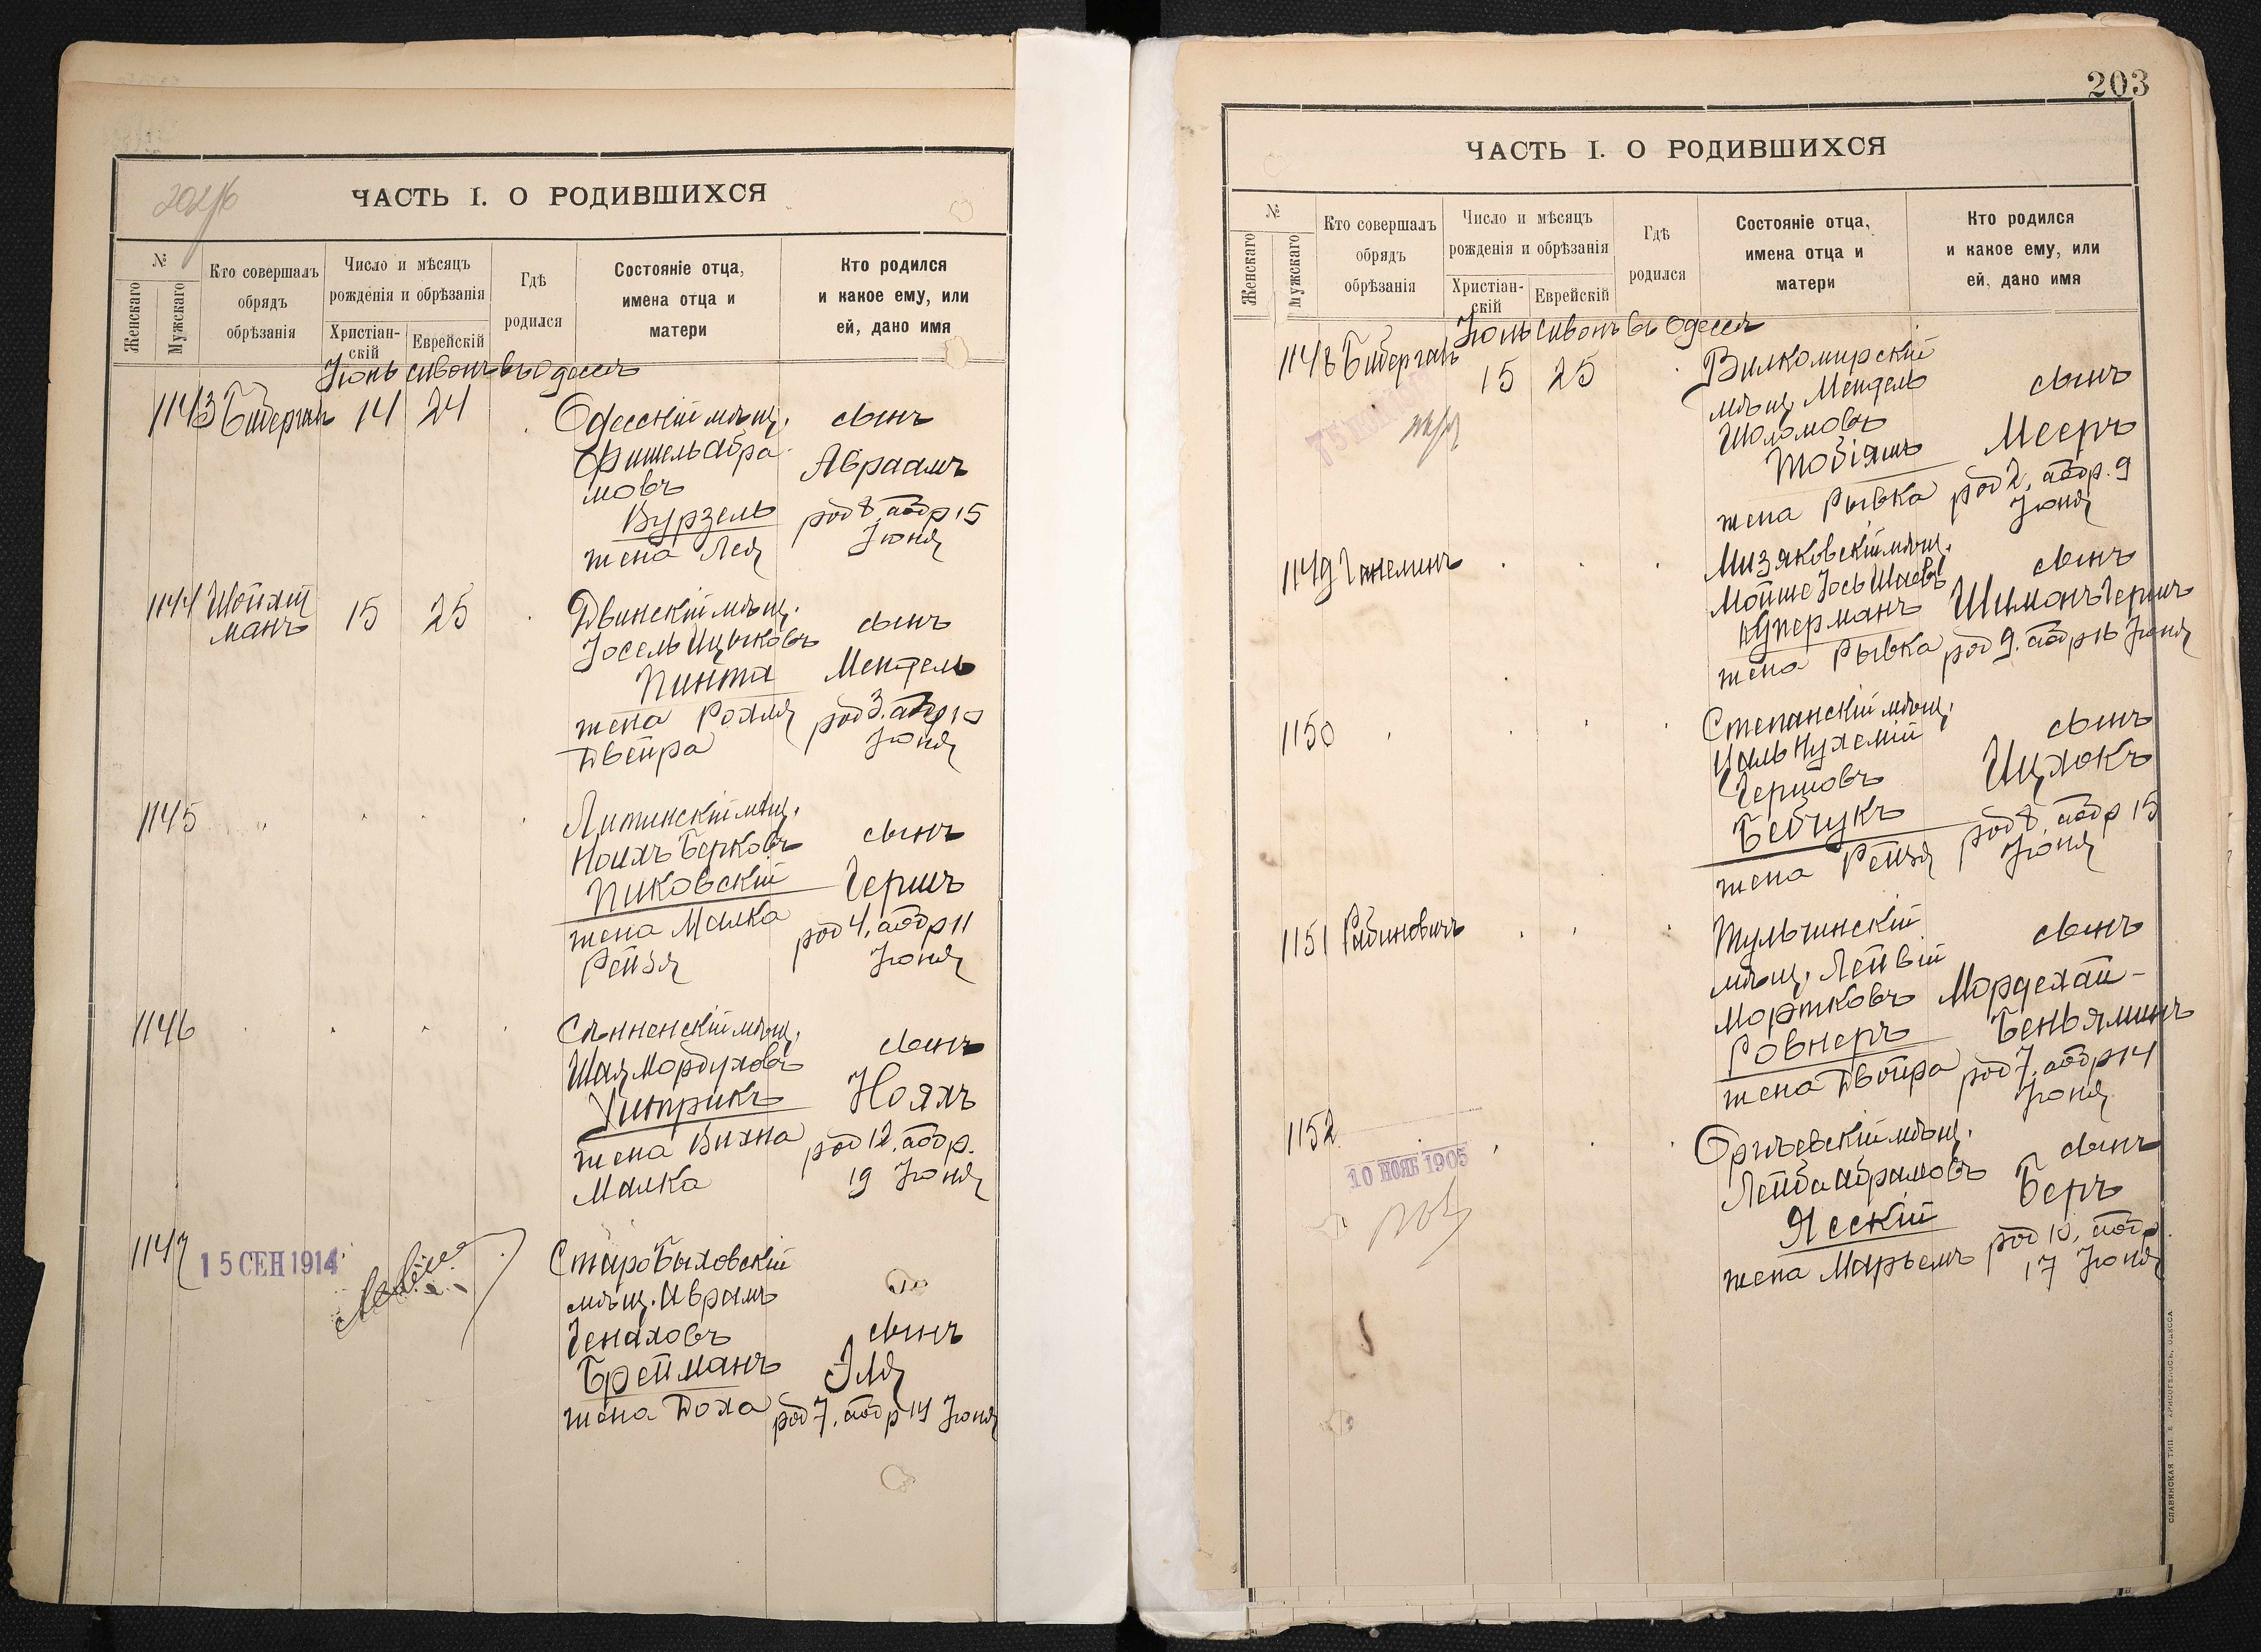 ЧАСТЬ I. О РОДИВШИХСЯ
№
Женскаго
Мужскаго
Кто совершалъ
обрядъ
обрѣзанія
Число и мѣсяцъ
рожденія и обрѣзанія
Христіан-
скій
Еврейскій
Гдѣ
родился
Состояніе отца,
имена отца и
матери
Кто родился
и какое ему, или
ей, дано имя
Іюнь сивонъ въ Одессѣ
1143 Биберган 14 24
Одесскій мѣщ.
Фишель Абра
мовъ
Вурзель
жена Лея
сынъ
Авраамъ
род 8, аобр 15
Іюня
1144 Шойхт
манъ
15 25
Двинскій мѣщ.
Іосель Ицыковъ
Пинта
жена Рохля
Двейра
сынъ
Мендель
род 3, аобр 10
Іюня
1145
Литинскій мѣщ.
Ноихъ Берковъ
Пиковскій
жена Малка
Рейзя
сынъ
Гершъ
род 4, аобр 11
Іюня
1146
Сѣнненскій мѣщ.
Шая Мордуховъ
жена Вихна
Малка
сынъ
Нояхъ
род 12, аобр.
19 Іюня
1147
15 СЕН 1914
СтароБыховскій
мѣщ. Аврамъ
Генаховъ
Брейманъ
жена Доха
сынъ
Эля
род 7, аобр 14 Іюня
203
ЧАСТЬ I. О РОДИВШИХСЯ
№
Женскаго
Мужскаго
Кто совершалъ
обрядъ
обрѣзанія
Число и мѣсяцъ
рожденія и обрѣзанія
Христіан-
скій
Еврейскій
Гдѣ
родился
Состояніе отца,
имена отца и
матери
Кто родился
и какое ему, или
ей, дано имя
Іюнь сивонъ въ Одессѣ
1148 Биберган 15 25
Вилкомирскій
мѣщ. Мендель
Шоломовъ
Тобіяшъ
жена Рывка
сынъ
Мееръ
род 2, аобр. 9
Іюня
1149 Ганелинъ
Мизяковскій мѣщ.
Мойше Іось Шаевъ
Куперманъ
жена Рывка
сынъ
Шимонъ Гершъ
род 9, аобр 16 Іюня
1150
Степанскій мѣщ.
Цаль Нухемій
Гершовъ
Бебчукъ
жена Рейзя
сынъ
Ицхокъ
род 8, аобр 15
Іюня
1151 Рабиновичъ
Тульчинскій
мѣщ. Лейвій
Мортковъ
Ровнеръ
жена Двойра
сынъ
Мордехай-
Беньяминъ
род 7, аобр 14
Іюня
1152
10 НОЯБ 1905
Оргѣевскій мѣщ.
Лейба Абрамовъ
Ясскій
жена Марьемъ
сынъ
Беръ
род 10, аобр.
17 Іюня